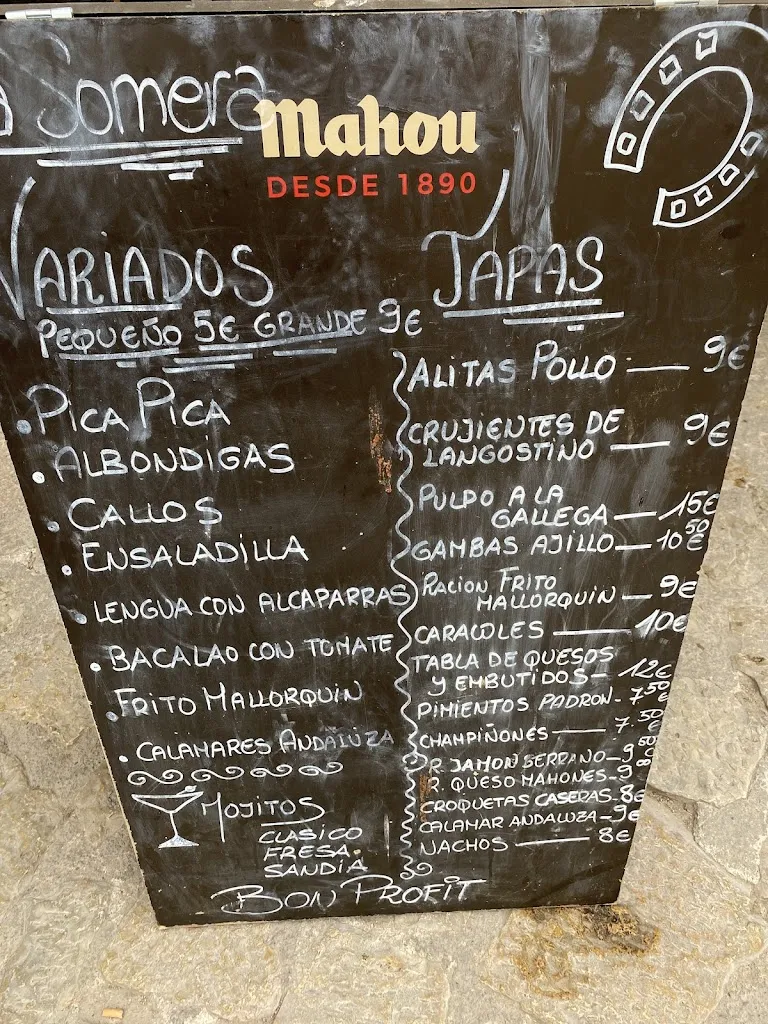 a Somera
Mahou
DESDE 1890
VARIADOS
PEQUEÑO 5€ GRANDE 9€
• PICA PICA
• ALBONDIGAS
• CALLOS
• ENSALADILLA
• LENGUA CON ALCAPARRAS
• BACALAO CON TOMATE
• FRITO MALLORQUIN
• CALAMARES ANDALUZA
MOJITOS
CLASICO
FRESA
SANDIA
TAPAS
ALITAS POLLO — 9€
CRUJIENTES DE
LANGOSTINO — 9€
PULPO A LA
GALLEGA — 15€
GAMBAS AJILLO — 10 50 €
RACION FRITO
MALLORQUIN — 9€
CARACOLES — 10€
TABLA DE QUESOS
Y EMBUTIDOS — 12€
PIMIENTOS PADRON - 7 50 €
CHAMPIÑONES — 7.50 €
R. JAMON SERRANO — 9
R. QUESO MAHONES - 9
CROQUETAS CASERAS - 8€
CALAMAR ANDALUZA - 9€
NACHOS — 8€
BON PROFIT